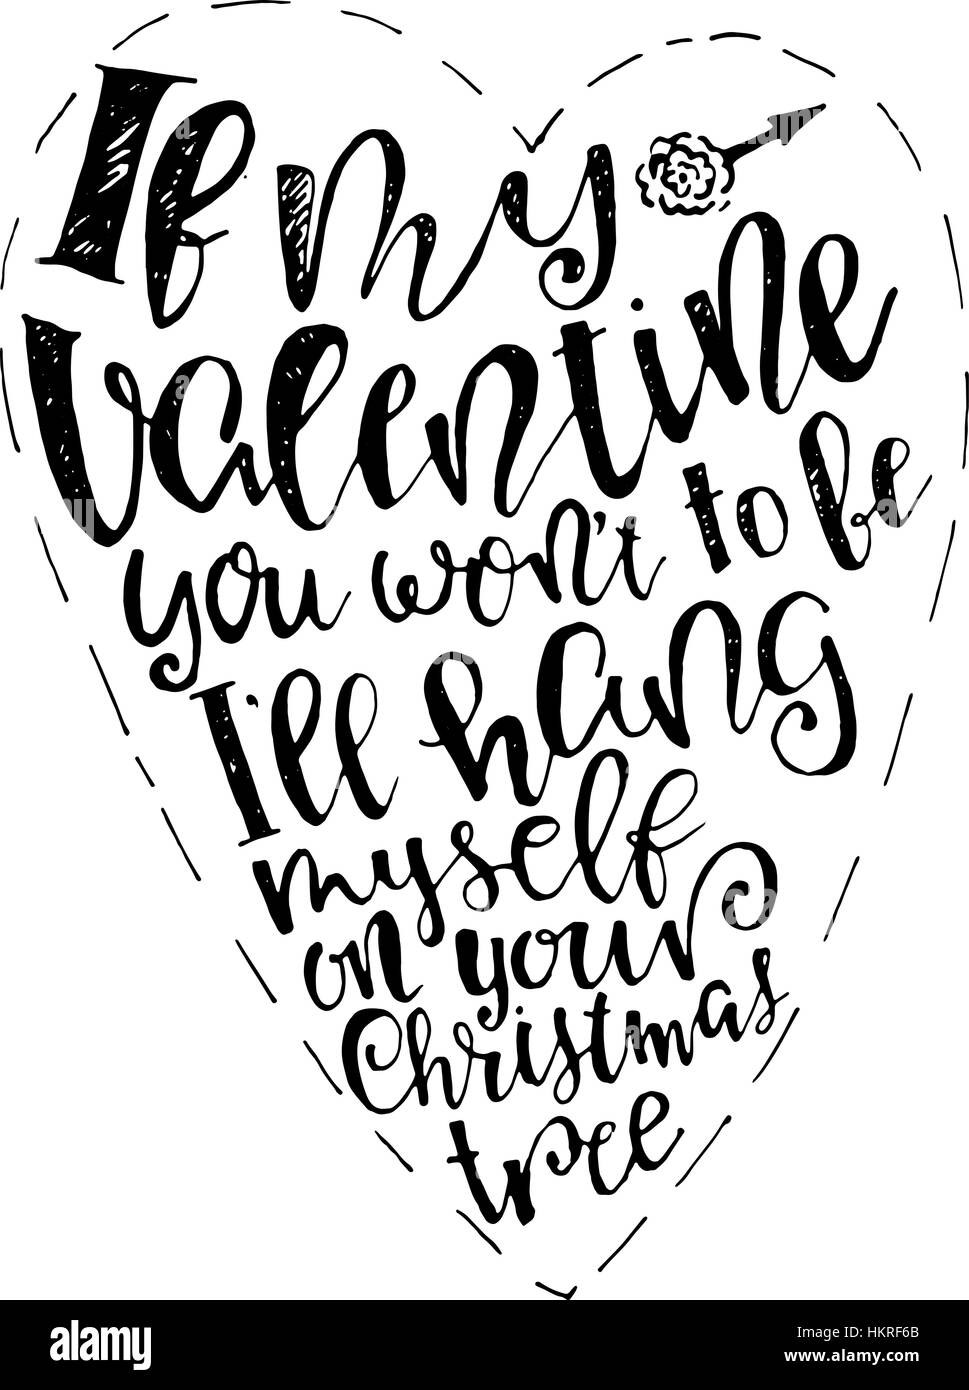 If my
Valentine
you won't to be
I'll hang
myself
on your
Christmas
tree
alamy
Image ID: HKRF6B
www.alamy.com